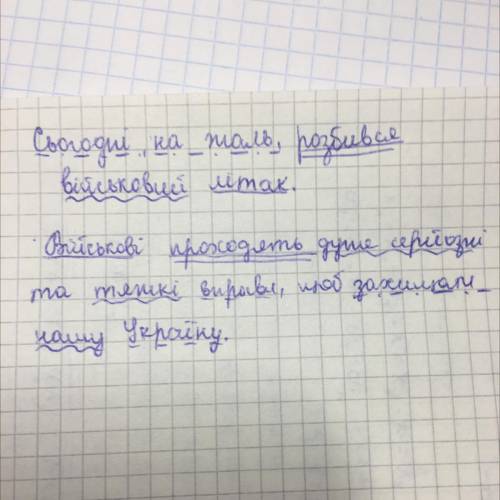 Сьогодні, на жаль, розбився
військовий літак.
Військові проходять дуже серйозні
та тяжкі вправи, щоб захищати
нашу Україну.